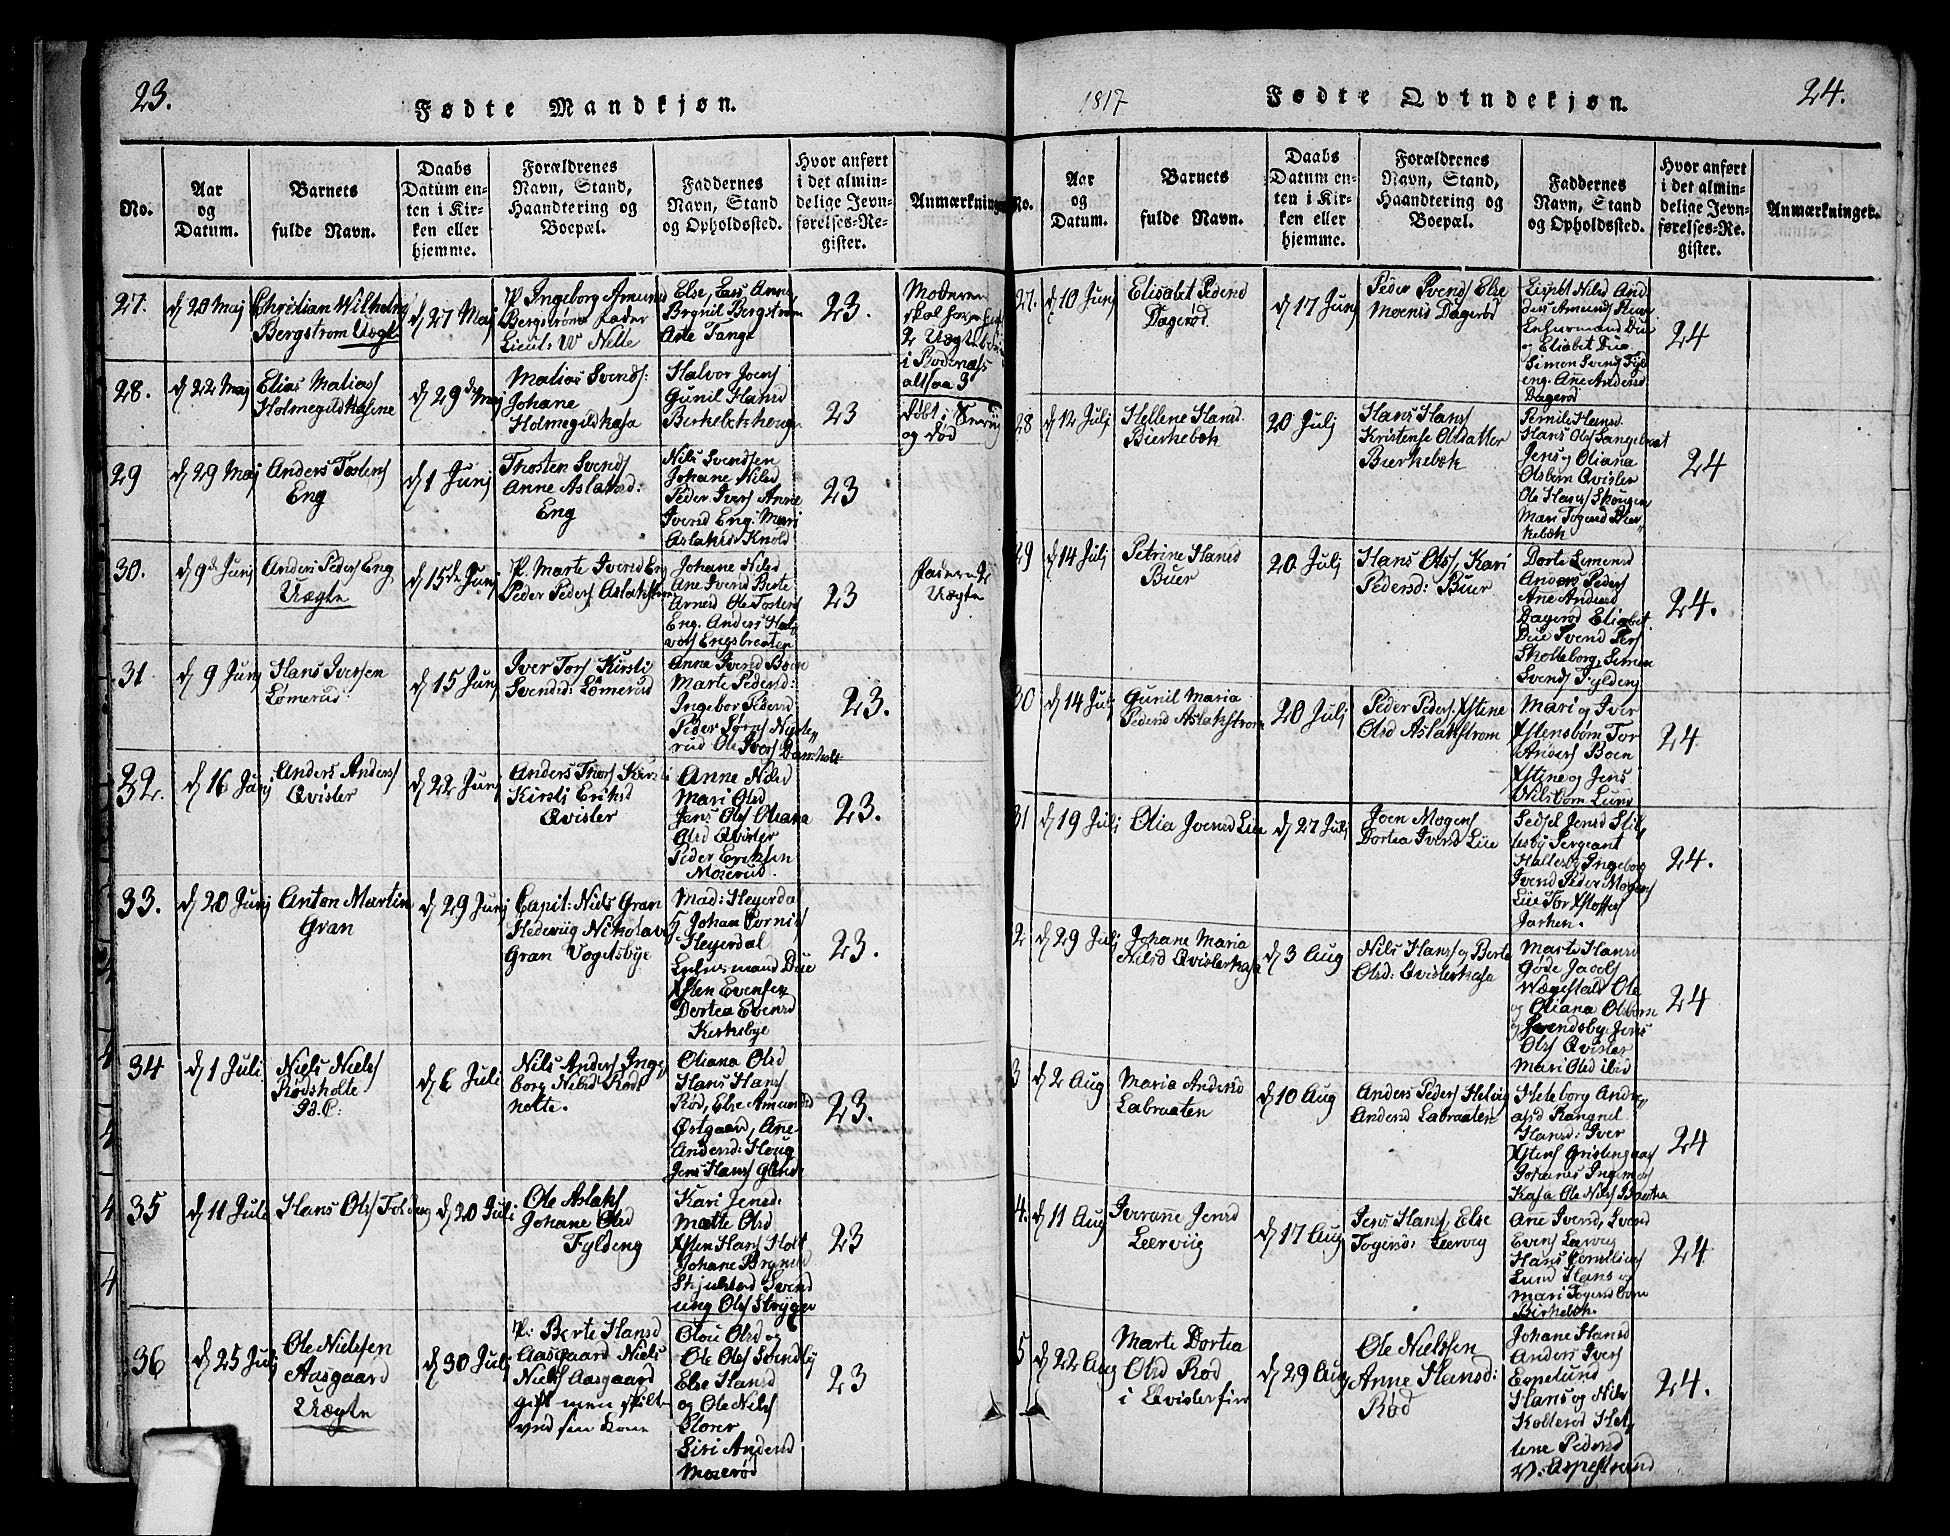 23.
Fødte Mandkjøn.
No.
Aar
og
Datum.
Barnets
fulde Navn.
Daabs
Datum en-
ten i Kir-
ken eller
hjemme.
Forældrenes
Navn, Stand,
Haandtering og
Boepæl.
Faddernes
Navn, Stand
og Opholdssted.
Hvor anført
i det almin-
delige Jevn-
førelses-Re-
gister.
Anmærkninger
27.
d 20 Maj
Christian Wilhelm
Bergstrøm Uægte
d 27 Maj
P. Ingeborg Amunds
Bergstrøm Fader
Lieut: W Nelle
Else, Anne
Brynil Bergstrøm
Aste Tange
23.
Moderen
skal have havt
2 Uægte børn
i Bodenæs
altsaa 3
28.
d 22 Maj
Elias Matias
Holmegildkasene
d 29de Maj
Matias Svends:
Johane
Holmegildkasa
Halvor Joens
Gunil Hansd
Birkebekhougen
23
døbt i
og død
29
d 29 Maj
Anders Tostens
Eng
d 1 Junj
Thosten Svends
Anne Aslaksd:
Eng
Nils Svendsen
Johane Nilsd
Peder Ivers Anne
Iversd Eng. Mari
Aslaksd Knold
23
30.
d 9de Junj
Anders Peders Eng
Uægte
d 15de Junj
P. Marte Iversd Eng
Peder Peders Aslakstrøm
Johane Nilsd
Ane Iversd Berte
Arnesd Ole Tostens
Eng. Anders Hal-
vors Engsbraaten
23
Faderens 2
Uægte
31
d 9 Junj
Hans Iversen
Lømerud
d 15 Junj
Iver Tors Kirsti
Svendsd: Lømerud
Anna Iversd Boen
Marte Pedersd:
Ingebor Pedersd
Peder Tørgs
rud Ole Ivers Damholt
23.
32.
d 16 Junj
Anders Anders
Qvisler
d 22 Junj
Anders Thors Kirsti
Kirsti Eriksd
Qvisler
Anne Nilsd
Mari Olsd
Jens Ols Oliana
Olsd Qvisler
Peder Eriksen
Moserud.
23.
33.
d 20 Junj
Anton Martin
Gran
d 29 Junj
Capit: Niels Gran
Hedewig Nikolave
Gran Vogtsbye
Mad: Heyerda
Johan Cornis
Heyerdal
Lehnsmand Due
Xsten Evensen
Dortea Evensd
Kirkebye
23.
34
d 1 Juli
Niels Niels
Rødsholte
d 6 Juli
Nils Anders Inge-
borg Nilsd Rods
holte.
Oliana Olsd
Hans Hans
Rød, Else Amundsd
Østgaard, Ane
Andersd: Houg
Jens Hans Glende
23.
35
d 11 Juli
Hans Ols Folden
d 20 Juli
Ole Aslaks
Johane Olsd
Fyldeng
Kari Jensd:
Matte Olsd
Xsten Hans Holt
Johane Brynild
Skjulstad Svend
ung Ols Stryger
23
36
d 25 Julj
Ole Nielsen
Aasgaard
Uægte
d 30 Julj
P: Berte Hansd
Aasgaard Niels
Niels Aasgaard
gift men skilt
ved sin Kone
Olou Olsd og
Ole Ols Svendby
Else Hansd
og Ole Nils
Siri Andersd
Moserød
23
1817
Fødte Qvindekjøn.
24.
No.
Aar
og
Datum.
Barnets
fulde Navn.
Daabs
Datum en-
ten i Kir-
ken eller
hjemme.
Forældrenes
Navn, Stand,
Haandtering og
Boepæl.
Faddernes
Navn, Stand
og Opholdssted.
Hvor anført
i det almin-
delige Jevn-
førelses-Re-
gister.
Anmærkninger.
27.
d 10 Junj
Elisabet Pedersd
Dagerød.
d 17 Junj
Peder Svends Else
Moensd Dagerød
Elisabet Nilsd And
Lehnsmand Due
og Elisabet Due
Simon Svends Fyld
eng. Ane Andersd
Dagerød
24
28
d 12 Julj
Hellene Hansd.
Bierkebek
20 Julj
Hans Hans
Kristense Olsdatter
Bierkebek
Pernile Hansd.
Hans Ols Langebraat
Jens og Oliana
Olsbørn Qvisler
Ole Hans Skougen
Mari Togersd Bier-
kebek
24
29
d 14 Julj
Petrine Hansd
Buer
20 Julj
Hans Ols, Kari
Pedersd: Buer
Dorte Simensd
Anders Peders
Ane Andersd
Dagerød Elisabet
Due Svend Pers
Skolleborg, Simen
Svends Fyldeng
24.
30
d 14 Julj
Gunil Maria
Pedersd Aslakstrøm
20 Julj
Peder Peders: Xstine
Olsd Aslakstrøm
Mari og Iver
Xstensbørn Tor
Anders Boen
Xstine og Jens
Nilsbørn Lund
24
31
d 19 Julj
Olia Joensd Lie
d 27 Julj
Joen Mogens
Dortea Iversd Lie
Sedsel Jensd Stil-
lesby Sergeant
Haltesby Ingeborg
Iversd Peder Mogens
Lie Tor Xstoffers
Jarken.
24.
2
d 29 Julj
Johane Maria
Nilsd Qvislerkasa
d 3 Aug
Nils Hans og Berte
Olsd: Qvislerkasa
Marte Hansd
Gøde Jacobs
Wægestad Ole
og Oliana Olsbørn
Svendsbye Jens
Ols Qvisler
Mari Olsd ibid
24
3
d 2 Aug
Maria Andersd
Labraaten
d 10 Aug
Anders Peders Helvig
Andersd Labraaten
Heleborg Andre-
asd Rangnel
Hansd: Iver
Xstens Gristengaas
Johannes Ingemor
Kasa Ole Nils Bratna
24
4.
d 11 Aug
Iveranne Jensd
Leerviig
d 17 Aug
Jens Hans, Else
Togersd: Leervig
Ane Iversd, Svend
Evens Lervig
Hans Cornelius
Lund Hans og
Mari Togersd børn
Birkebek.
24
5
d 22 Aug
Marte Dortea
Olsd Rød
i Qvislerfir
d 29 Aug
Ole Nielssen
Anne Hansd:
Rød
Johane Hansd
Anders Ivers
Espelund
Hans og Nils
Kolterød Hel-
lene Pedersd
V: Aspestrand
24.